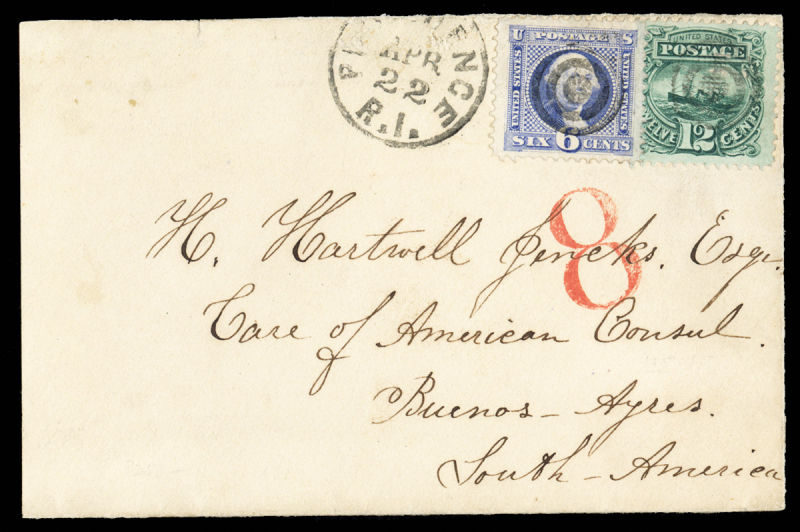 APR
22
R.I.
U POSTAGE S
UNITED STATES
UNITED STATES
SIX 6 CENTS
UNITED STATES
POSTAGE
TWELVE 12 CENTS
8
H. Hartwell Jencks. Esqr.
Care of American Consul.
Buenos - Ayres.
South - America